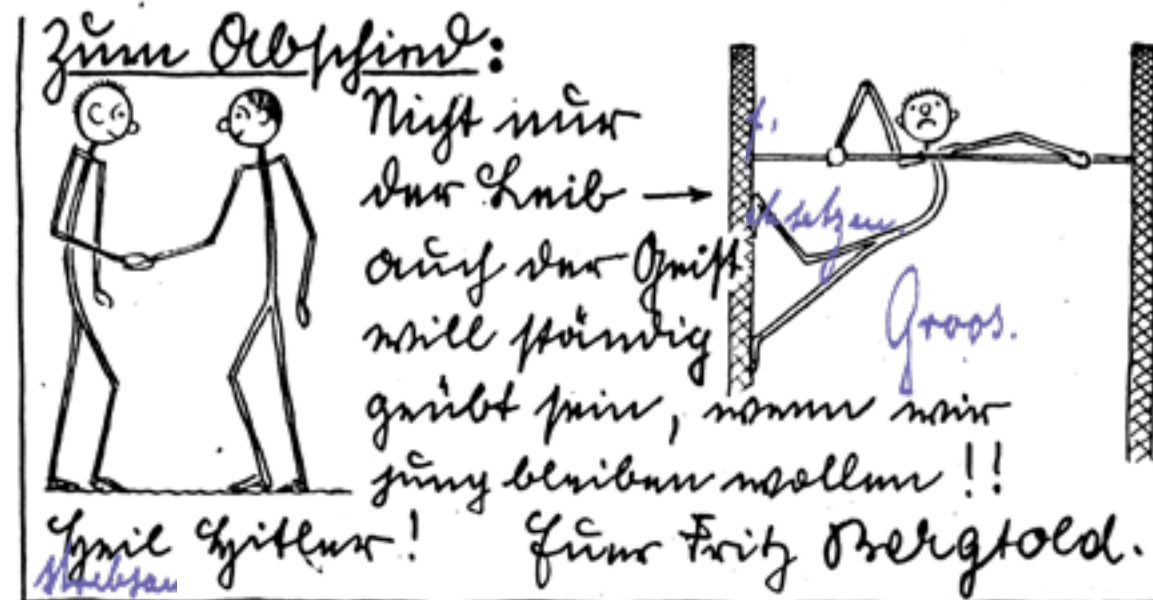 Zum Abschied:
Nicht nur
der Leib →
auch der Geist
will ständig
geübt sein, wenn wir
jung bleiben wollen!!
Heil Hitler! Euer Fritz Bergtold.
f.
setzen.
Groos.